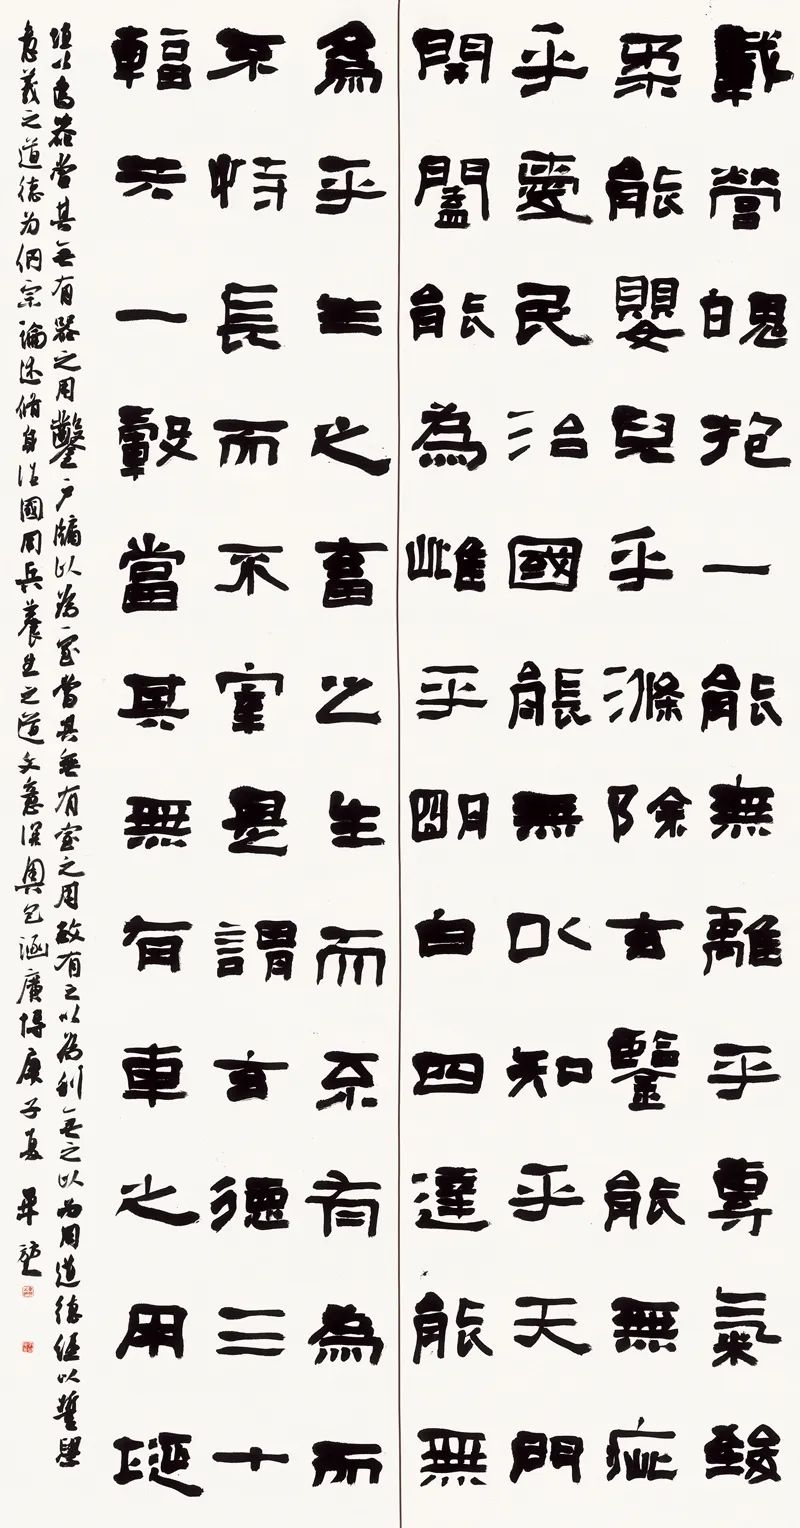 載營魄抱一能無離乎專氣致
柔能嬰兒乎滌除玄鑒能無疵
乎愛民治國能無以知乎天門
開闔能為雌乎明白四達能無
為乎生之畜之生而不有為而
不恃長而不宰是謂玄德三十
輻共一轂當其無有車之用埏
埴以為器當其無有器之用鑿戶牖以為室當其無有室之用故有之以為利無之以為用道德經以哲學
意義之道德为綱宗論述修身治國用兵養生之道文意深奧包涵廣博庚子夏